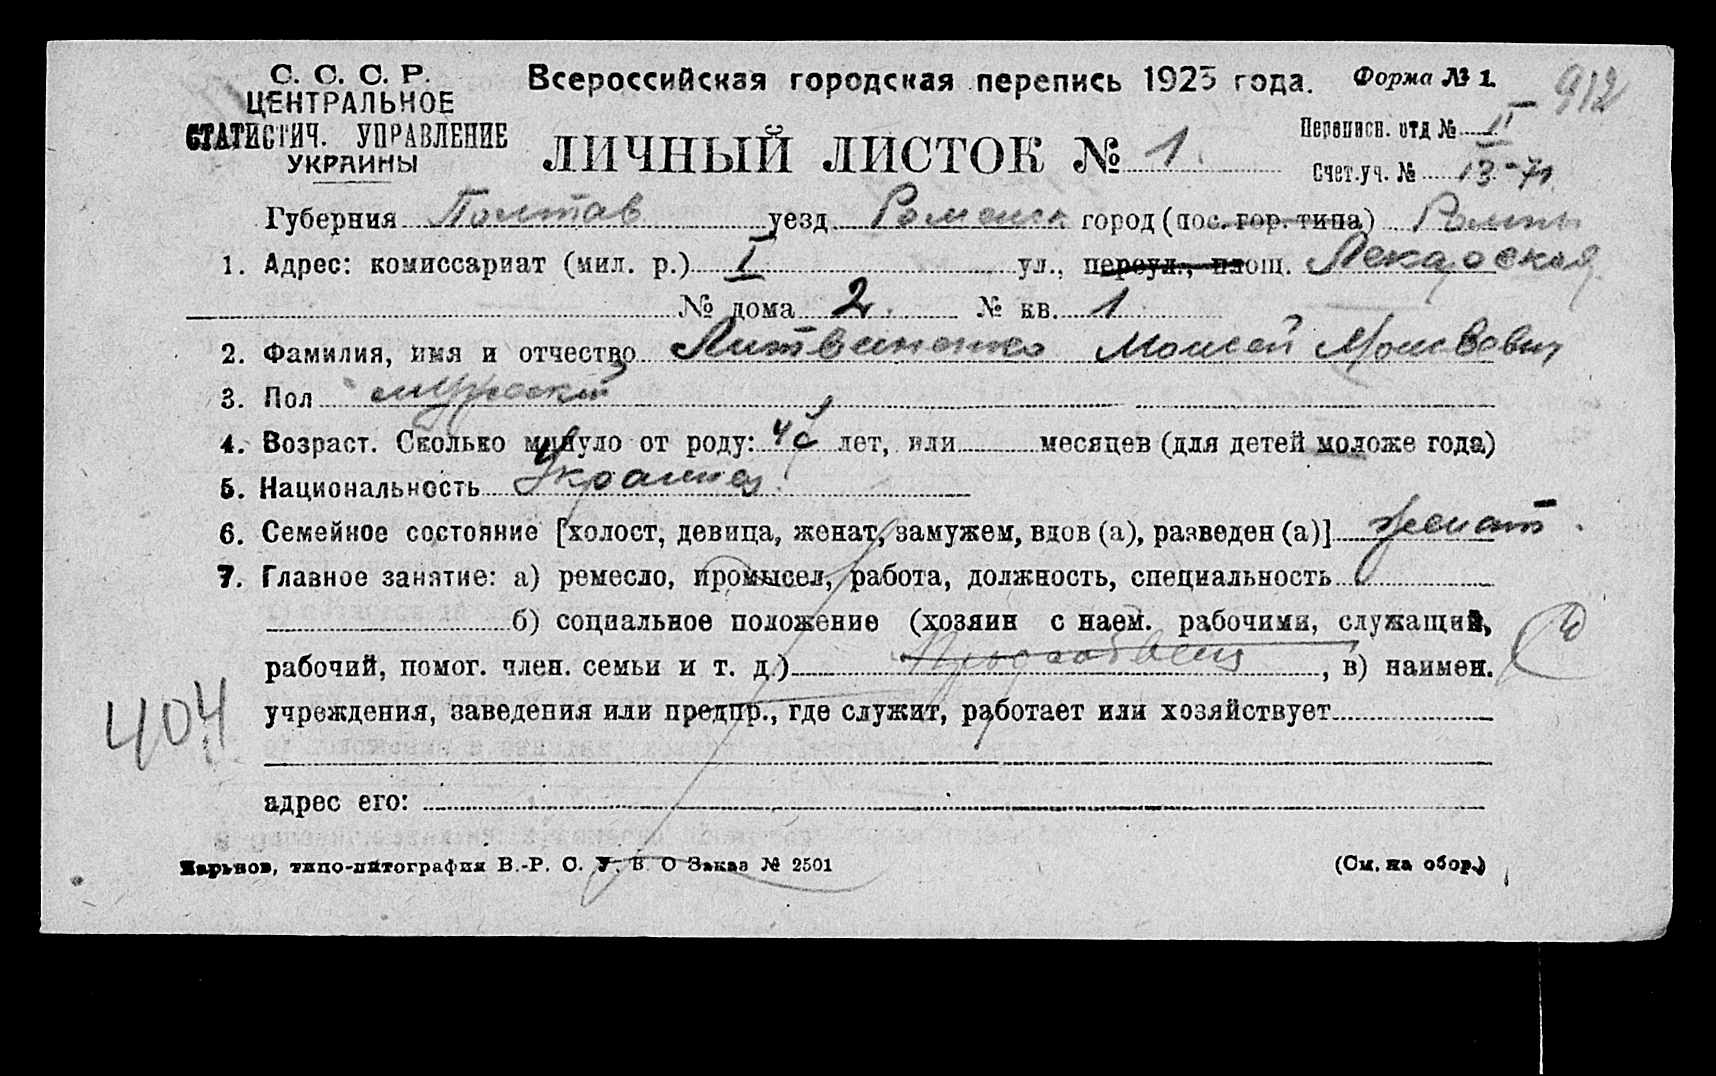 С. С. С. Р.
ЦЕНТРАЛЬНОЕ
СТАТИСТИЧ. УПРАВЛЕНИЕ
УКРАИНЫ
Всероссийская городская перепись 1923 года. Форма № 1.
912
ЛИЧНЫЙ ЛИСТОК № 1.
Переписн. отд № II
Счет.уч. № 13-71
Губерния Полтав уезд Роменск город (пос. гор. типа) Ромны
1. Адрес: комиссариат (мил. р.) I ул., переул., площ. Пекарская
№ дома 2. № кв. 1
2. Фамилия, имя и отчество Литвиненко Моисей
3. Пол мужской
4. Возраст. Сколько минуло от роду: лет, или месяцев (для детей моложе года)
5. Национальность Украинец
6. Семейное состояние [холост, девица, женат, замужем, вдов (а), разведен (а)] женат.
7. Главное занятие: а) ремесло, промысел, работа, должность, специальность
б) социальное положение (хозяин с наем. рабочими, служащий,
рабочий, помог. член. семьи и т. д.) , в) наимен.
404
учреждения, заведения или предпр., где служит, работает или хозяйствует
адрес его:
Харьков, типо-литография В.-Р. С. У. В О Заказ № 2501 (См. на обор.)